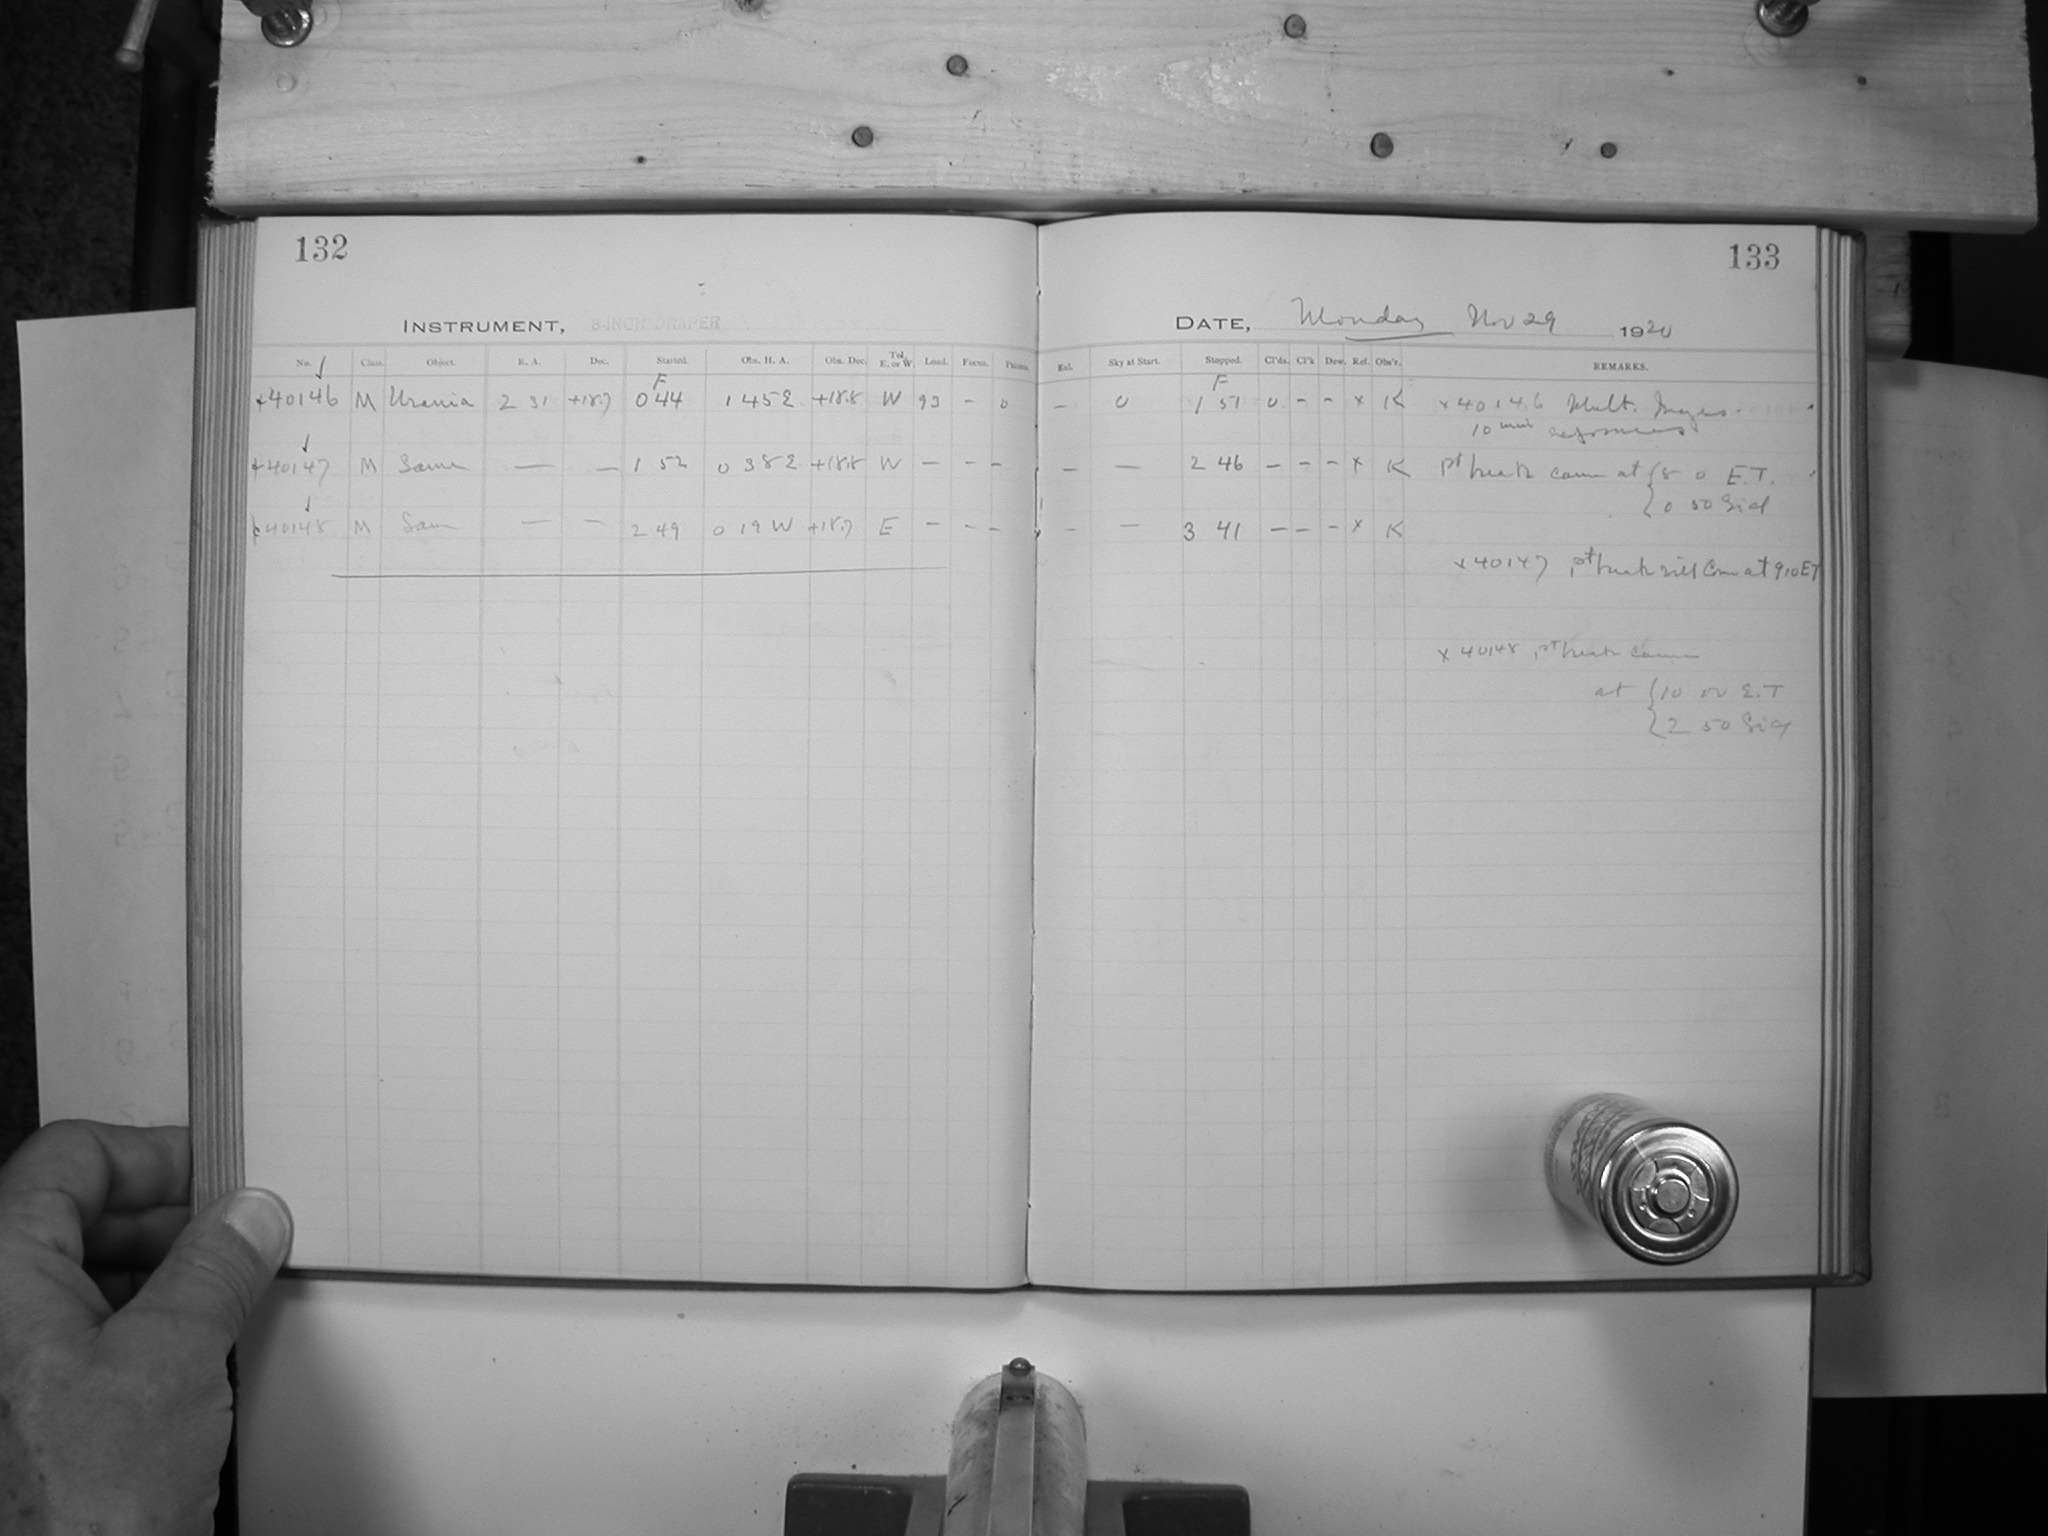 132
133
INSTRUMENT, 8-INCH DRAPER
DATE, Monday Nov 29 1920
No. Class. Object. R. A. Dec. Started. Obs. H. A. Obs. Dec. Tel. E. or W. Load. Focus. Prisms.
Ent. Sky at Start. Stopped. Cl'ds. Cl'k Dew. Ref. Obs'r. REMARKS.
F
F
x40146 M Urania 2 31 +18.7 0 44 1 45 E +18.8 W 93 - 0 - 0 1 51 0 - - x K x40146 Mult. Images
10 min exposures
x40147 M Same — — 1 52 0 38 E +18.8 W - - - - — 2 46 - - - x K at 8 0 E.T.
0 50 Sid
x40148 M Same — — 2 49 0 19 W +18.7 E - - - - — 3 41 - - - x K
x40147 will Come at 9 10 ET
x40148
at 10 00 E.T
2 50 Sid